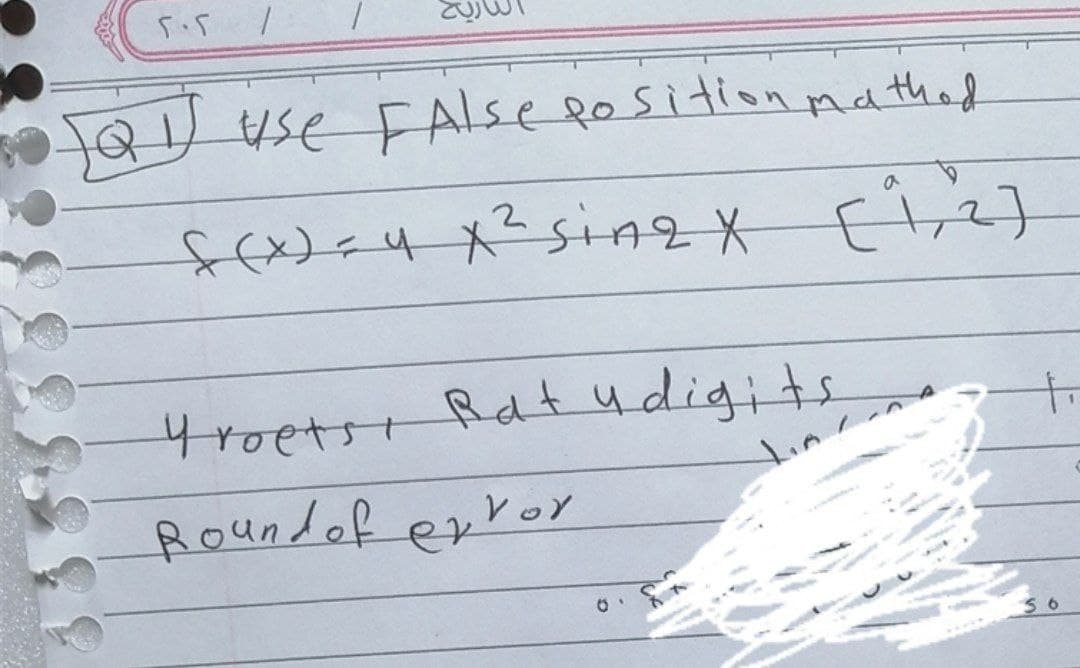 ٢٠٢ / / التاريخ
Q1 Use FAlse position mathod
f(x) = 4 x² sin2 x [1,2]
a b
4 roets, Rat 4 digits
Roundof error